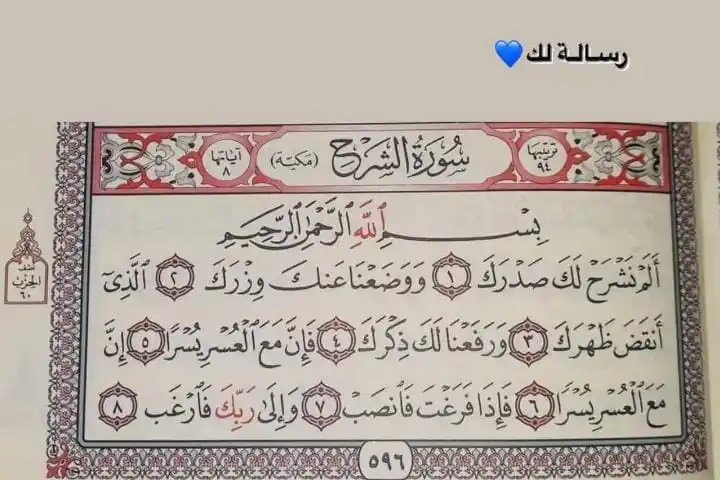 رسالة لك💙
ترتيبها ٩٤ سُورَةُ الشَّرْحِ (مكية) آياتها ٨
بِسْمِ ٱللَّهِ ٱلرَّحْمَٰنِ ٱلرَّحِيمِ
أَلَمْ نَشْرَحْ لَكَ صَدْرَكَ ١ وَوَضَعْنَا عَنكَ وِزْرَكَ ٢ ٱلَّذِىٓ
أَنقَضَ ظَهْرَكَ ٣ وَرَفَعْنَا لَكَ ذِكْرَكَ ٤ فَإِنَّ مَعَ ٱلْعُسْرِ يُسْرًا ٥ إِنَّ
مَعَ ٱلْعُسْرِ يُسْرًا ٦ فَإِذَا فَرَغْتَ فَٱنصَبْ ٧ وَإِلَىٰ رَبِّكَ فَٱرْغَب ٨
نصف
الحزب
٦٠
٥٩٦